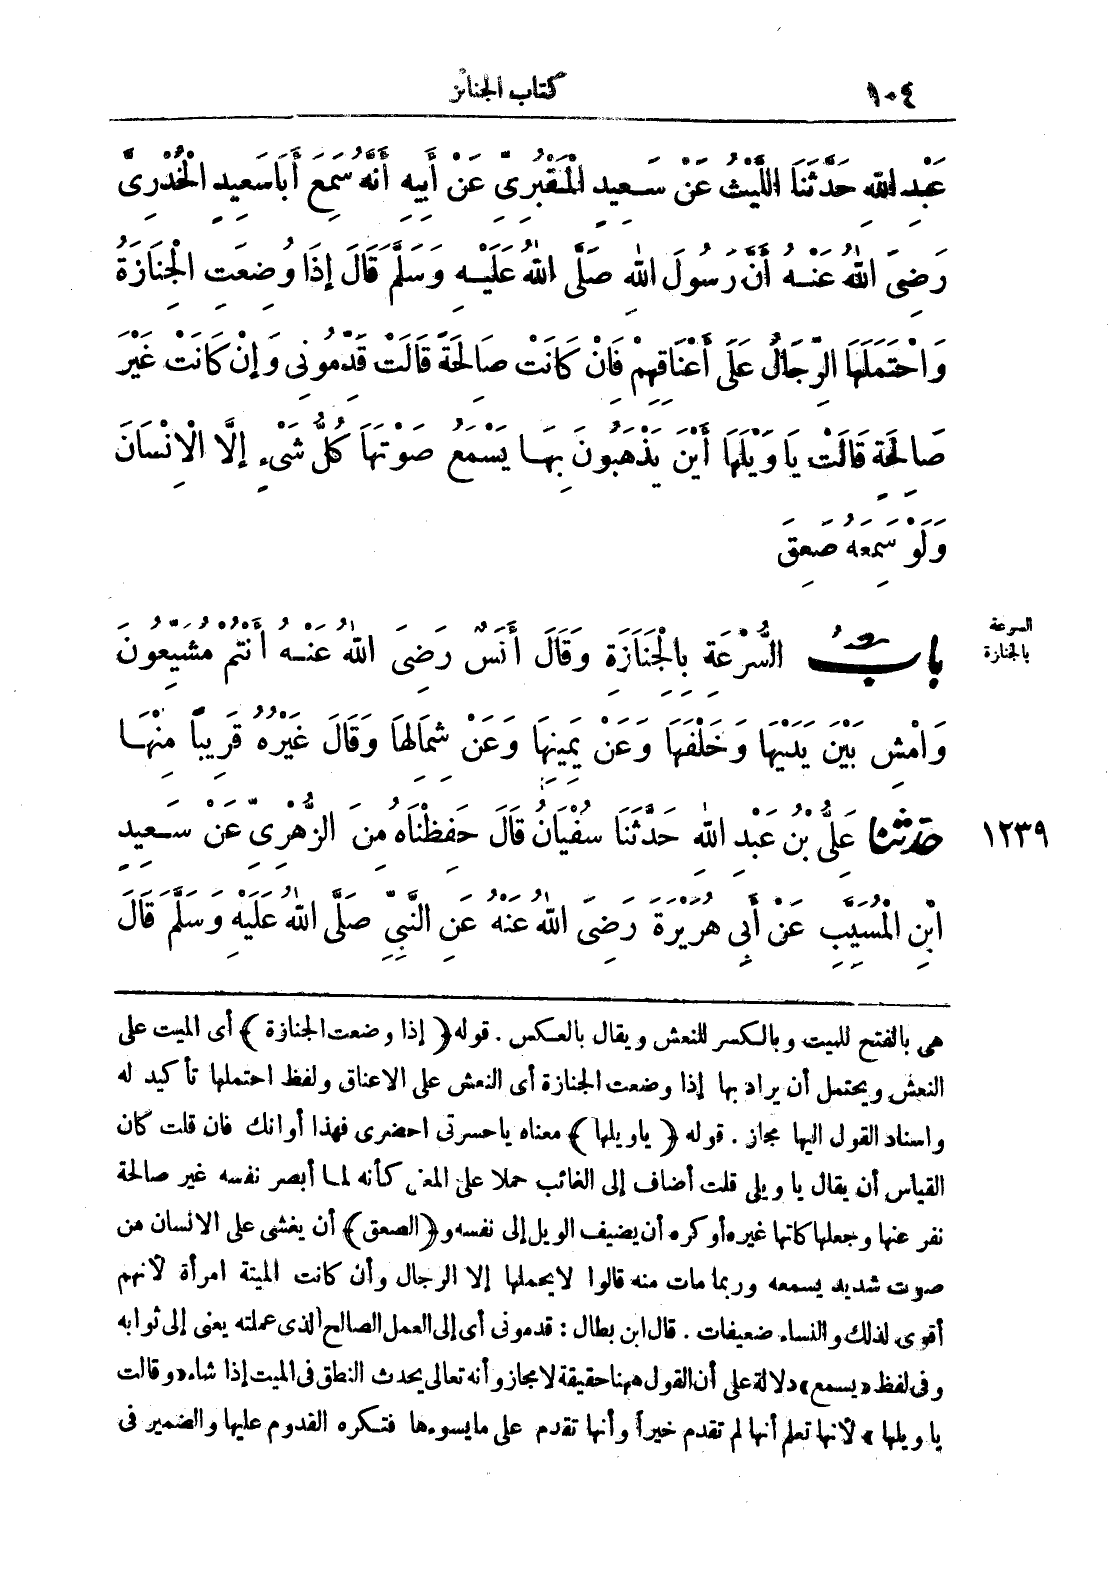 ١٠٤
كتاب الجنائز
عَبْدِ اللهِ حَدَّثَنَا اللَّيْثُ عَنْ سَعِيدٍ الْمَقْبُرِىِّ عَنْ أَبِيهِ أَنَّهُ سَمِعَ أَبَا سَعِيدٍ الْخُدْرِىَّ
رَضِىَ اللهُ عَنْهُ أَنَّ رَسُولَ اللهِ صَلَّى اللهُ عَلَيْهِ وَسَلَّمَ قَالَ إِذَا وُضِعَتِ الْجِنَازَةُ
وَاحْتَمَلَهَا الرِّجَالُ عَلَى أَعْنَاقِهِمْ فَإِنْ كَانَتْ صَالِحَةً قَالَتْ قَدِّمُونِى وَإِنْ كَانَتْ غَيْرَ
صَالِحَةٍ قَالَتْ يَا وَيْلَهَا أَيْنَ يَذْهَبُونَ بِهَا يَسْمَعُ صَوْتَهَا كُلُّ شَىْءٍ إِلَّا الْإِنْسَانَ
وَلَوْ سَمِعَهُ صَعِقَ
السرعة
بالجنازة
بابُ السُّرْعَةِ بِالْجَنَازَةِ وَقَالَ أَنَسٌ رَضِىَ اللهُ عَنْهُ أَنْتُمْ مُشَيِّعُونَ
وَامْشِ بَيْنَ يَدَيْهَا وَخَلْفَهَا وَعَنْ يَمِينِهَا وَعَنْ شِمَالِهَا وَقَالَ غَيْرُهُ قَرِيبًا مِنْهَا
١٢٣٩ حَدَّثَنَا عَلِىُّ بْنُ عَبْدِ اللهِ حَدَّثَنَا سُفْيَانُ قَالَ حَفِظْنَاهُ مِنَ الزُّهْرِىِّ عَنْ سَعِيدِ
ابْنِ الْمُسَيَّبِ عَنْ أَبِى هُرَيْرَةَ رَضِىَ اللهُ عَنْهُ عَنِ النَّبِىِّ صَلَّى اللهُ عَلَيْهِ وَسَلَّمَ قَالَ
هى بالفتح للميت وبالكسر للنعش ويقال بالعكس . قوله ﴿ إذا وضعت الجنازة ﴾ أى الميت على
النعش ويحتمل أن يراد بها إذا وضعت الجنازة أى النعش على الاعناق ولفظ احتملها تأكيد له
واسناد القول اليها مجاز . قوله ﴿ ياويلها ﴾ معناه ياحسرتى احضرى فهذا أوانك فان قلت كان
القياس أن يقال يا ويلى قلت أضاف إلى الغائب حملا على المعنى كأنه لما أبصر نفسه غير صالحة
نفر عنها وجعلها كأنها غيره أو كره أن يضيف الويل إلى نفسه و﴿ الصعق ﴾ أن يغشى على الانسان من
صوت شديد يسمعه وربما مات منه قالوا لايحملها إلا الرجال وأن كانت الميتة امرأة لأنهم
أقوى لذلك والنساء ضعيفات . قال ابن بطال : قدمونى أى إلى العمل الصالح الذى عملته يعنى إلى ثوابه
وفى لفظ «يسمع» دلالة على أن القول ههنا حقيقة لامجاز وأنه تعالى يحدث النطق فى الميت إذا شاء «وقالت
يا ويلها» لأنها تعلم أنها لم تقدم خيراً وأنها تقدم على مايسوءها فتكره القدوم عليها والضمير فى